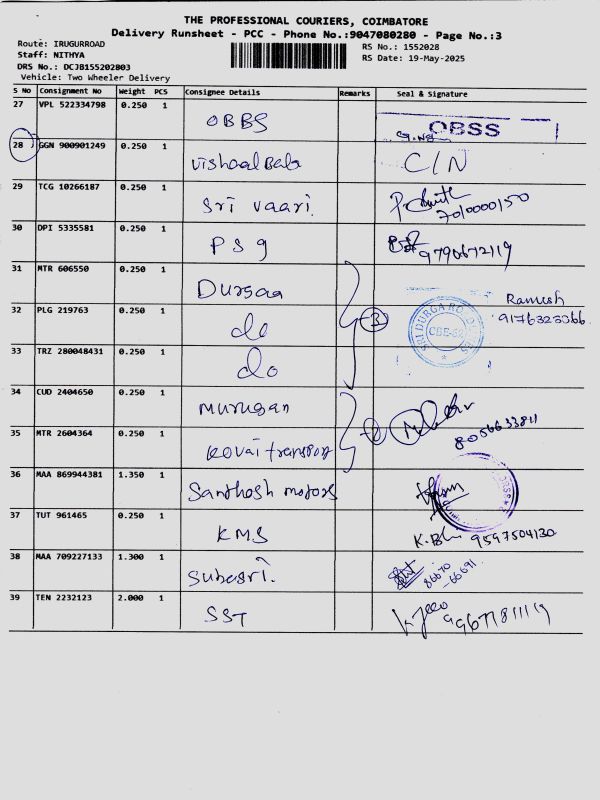 THE PROFESSIONAL COURIERS, COIMBATORE
Delivery Runsheet - PCC - Phone No.:9047080280 - Page No.:3
Route: IRUGURROAD
Staff: NITHYA
DRS No.: DCJB155202803
Vehicle: Two Wheeler Delivery
RS No.: 1552028
RS Date: 19-May-2025
S No Consignment No Weight PCS Consignee Details Remarks Seal & Signature
27 VPL 522334798 0.250 1 OBBS OBSS
28 GGN 900901249 0.250 1 vishaal Bala C/N
29 TCG 10266187 0.250 1 Sri vaari. 7010000150
30 DPI 5335581 0.250 1 PSg 9790672119
31 MTR 606550 0.250 1 Dursaa
Ramesh
9176323366
32 PLG 219763 0.250 1 do 3 SRI DURGA CBE-62
33 TRZ 280048431 0.250 1 do
34 CUD 2404650 0.250 1 murugan
35 MTR 2604364 0.250 1 kovai transport 8056633811
36 MAA 869944381 1.350 1 Santhosh motors
37 TUT 961465 0.250 1 KMS K.B 9597504130
38 MAA 709227133 1.300 1 Subasri. 86670
-66691
39 TEN 2232123 2.000 1 SST